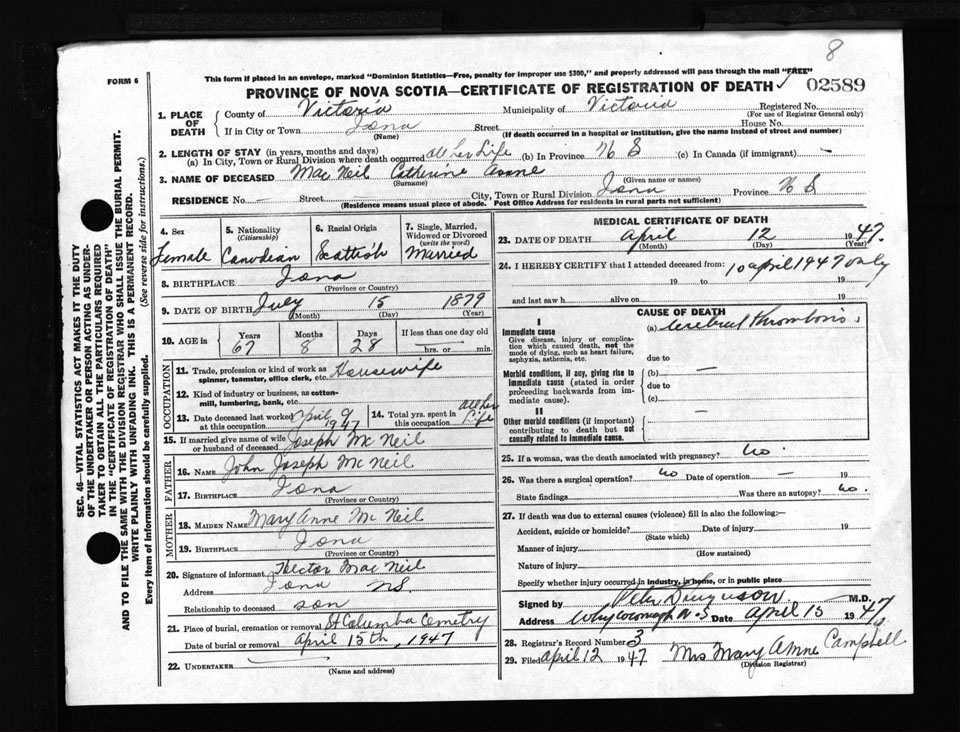 8
FORM 6
This form if placed in an envelope, marked "Dominion Statistics—Free, penalty for improper use $300," and properly addressed will pass through the mail "FREE"
PROVINCE OF NOVA SCOTIA—CERTIFICATE OF REGISTRATION OF DEATH ✓ 02589
1. PLACE OF DEATH { County of Victoria Municipality of Victoria Registered No.
(For use of Registrar General only)
If in City or Town Iona Street House No.
(Name) (If death occurred in a hospital or institution, give the name instead of street and number)
2. LENGTH OF STAY (in years, months and days)
(a) In City, Town or Rural Division where death occurred all her Life (b) In Province N S (c) In Canada (if immigrant) —
3. NAME OF DECEASED Mac Neil Catherine Anne
(Surname) (Given name or names)
RESIDENCE No. — Street City, Town or Rural Division Iona Province N S
(Residence means usual place of abode. Post Office Address for residents in rural parts not sufficient)
SEC. 46—VITAL STATISTICS ACT MAKES IT THE DUTY
OF THE UNDERTAKER OR PERSON ACTING AS UNDER-
TAKER TO OBTAIN ALL THE PARTICULARS REQUIRED
IN THE "CERTIFICATE OF REGISTRATION OF DEATH"
AND TO FILE THE SAME WITH THE DIVISION REGISTRAR WHO SHALL ISSUE THE BURIAL PERMIT.
WRITE PLAINLY WITH UNFADING INK. THIS IS A PERMANENT RECORD.
Every item of information should be carefully supplied. (See reverse side for instructions.)
4. Sex
Female
5. Nationality
(Citizenship)
Canadian
6. Racial Origin
Scottish
7. Single, Married,
Widowed or Divorced
(write the word)
Married
8. BIRTHPLACE Iona
(Province or Country)
9. DATE OF BIRTH July 15 1879
(Month) (Day) (Year)
10. AGE in { Years Months Days If less than one day old
67 8 28 hrs. or min.
OCCUPATION
11. Trade, profession or kind of work as Housewife
spinner, teamster, office clerk, etc.
12. Kind of industry or business, as cotton-
mill, lumbering, bank, etc.
13. Date deceased last worked April 9
at this occupation 1947
14. Total yrs. spent in all her
this occupation Life
15. If married give name of wife
or husband of deceased Joseph Mc Neil
FATHER
16. NAME John Joseph Mc Neil
17. BIRTHPLACE Iona
(Province or Country)
MOTHER
18. MAIDEN NAME Mary Anne Mc Neil
19. BIRTHPLACE Iona
(Province or Country)
20. Signature of informant Hector Mac Neil
Address Iona NS.
Relationship to deceased son
21. Place of burial, cremation or removal St Columba Cemetry
Date of burial or removal April 15th, 1947
22. UNDERTAKER
(Name and address)
MEDICAL CERTIFICATE OF DEATH
23. DATE OF DEATH April 12 1947.
(Month) (Day) (Year)
24. I HEREBY CERTIFY that I attended deceased from: 10 April 1947 only
19 to 19
and last saw h alive on 19
CAUSE OF DEATH
I
Immediate cause
Give disease, injury or complica-
tion which caused death, not the
mode of dying, such as heart failure,
asphyxia, asthenia, etc.
(a) Cerebral thrombosis
due to
Morbid conditions, if any, giving rise to
immediate cause (stated in order
proceeding backwards from im-
mediate cause).
(b) —
due to
(c)
II
Other morbid conditions (if important)
contributing to death but not
causally related to immediate cause.
—
25. If a woman, was the death associated with pregnancy? no.
26. Was there a surgical operation? no Date of operation — 19
State findings Was there an autopsy? no.
27. If death was due to external causes (violence) fill in also the following:—
Accident, suicide or homicide? Date of injury 19
(State which)
Manner of injury
(How sustained)
Nature of injury
Specify whether injury occurred in industry, in home, or in public place
Signed by M.D.
Address Whycocomagh N.S. Date April 15 1947
28. Registrar's Record Number 3
29. Filed April 12 1947 Mrs Mary Anne Campbell
(Division Registrar)